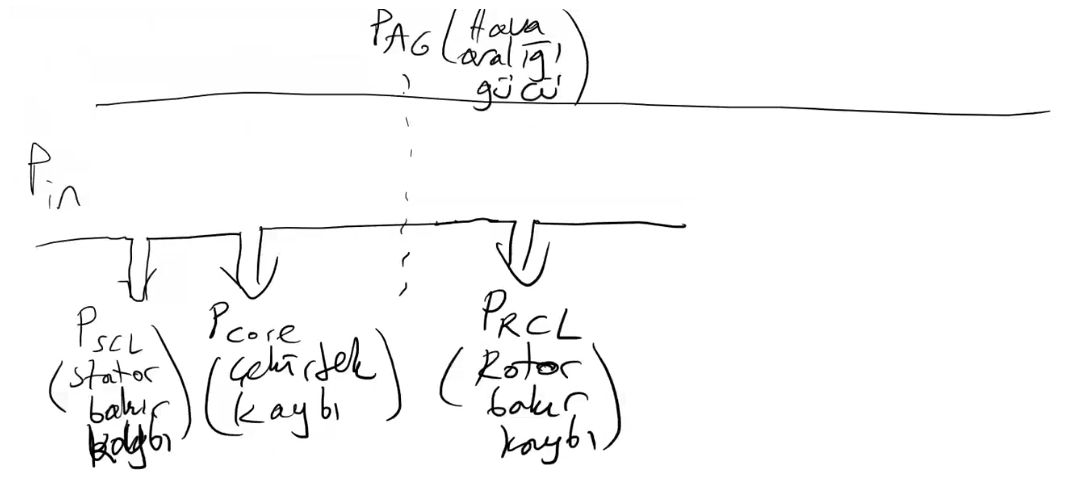 PAG (Hava
aralığı
gücü)
Pin
PSCL
(Stator
bakır
kaybı)
Pcore
(çekirdek
kaybı)
PRCL
(Rotor
bakır
kaybı)